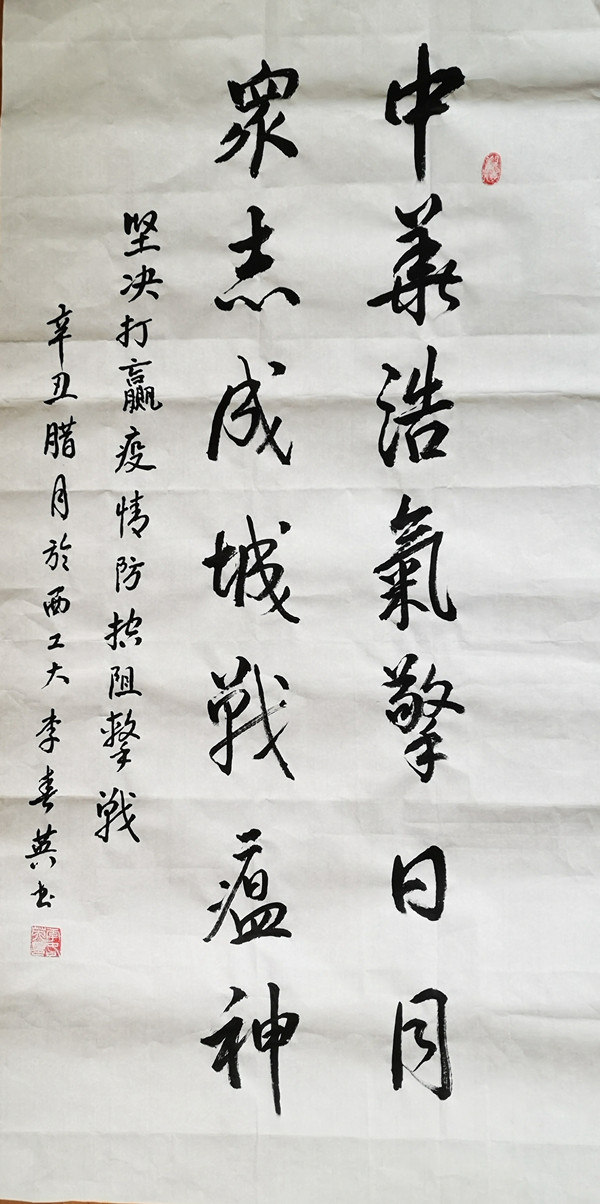 中華浩氣擎日月
眾志成城戰瘟神
坚决打贏疫情防控阻擊戰
辛丑腊月於西工大 李春英书